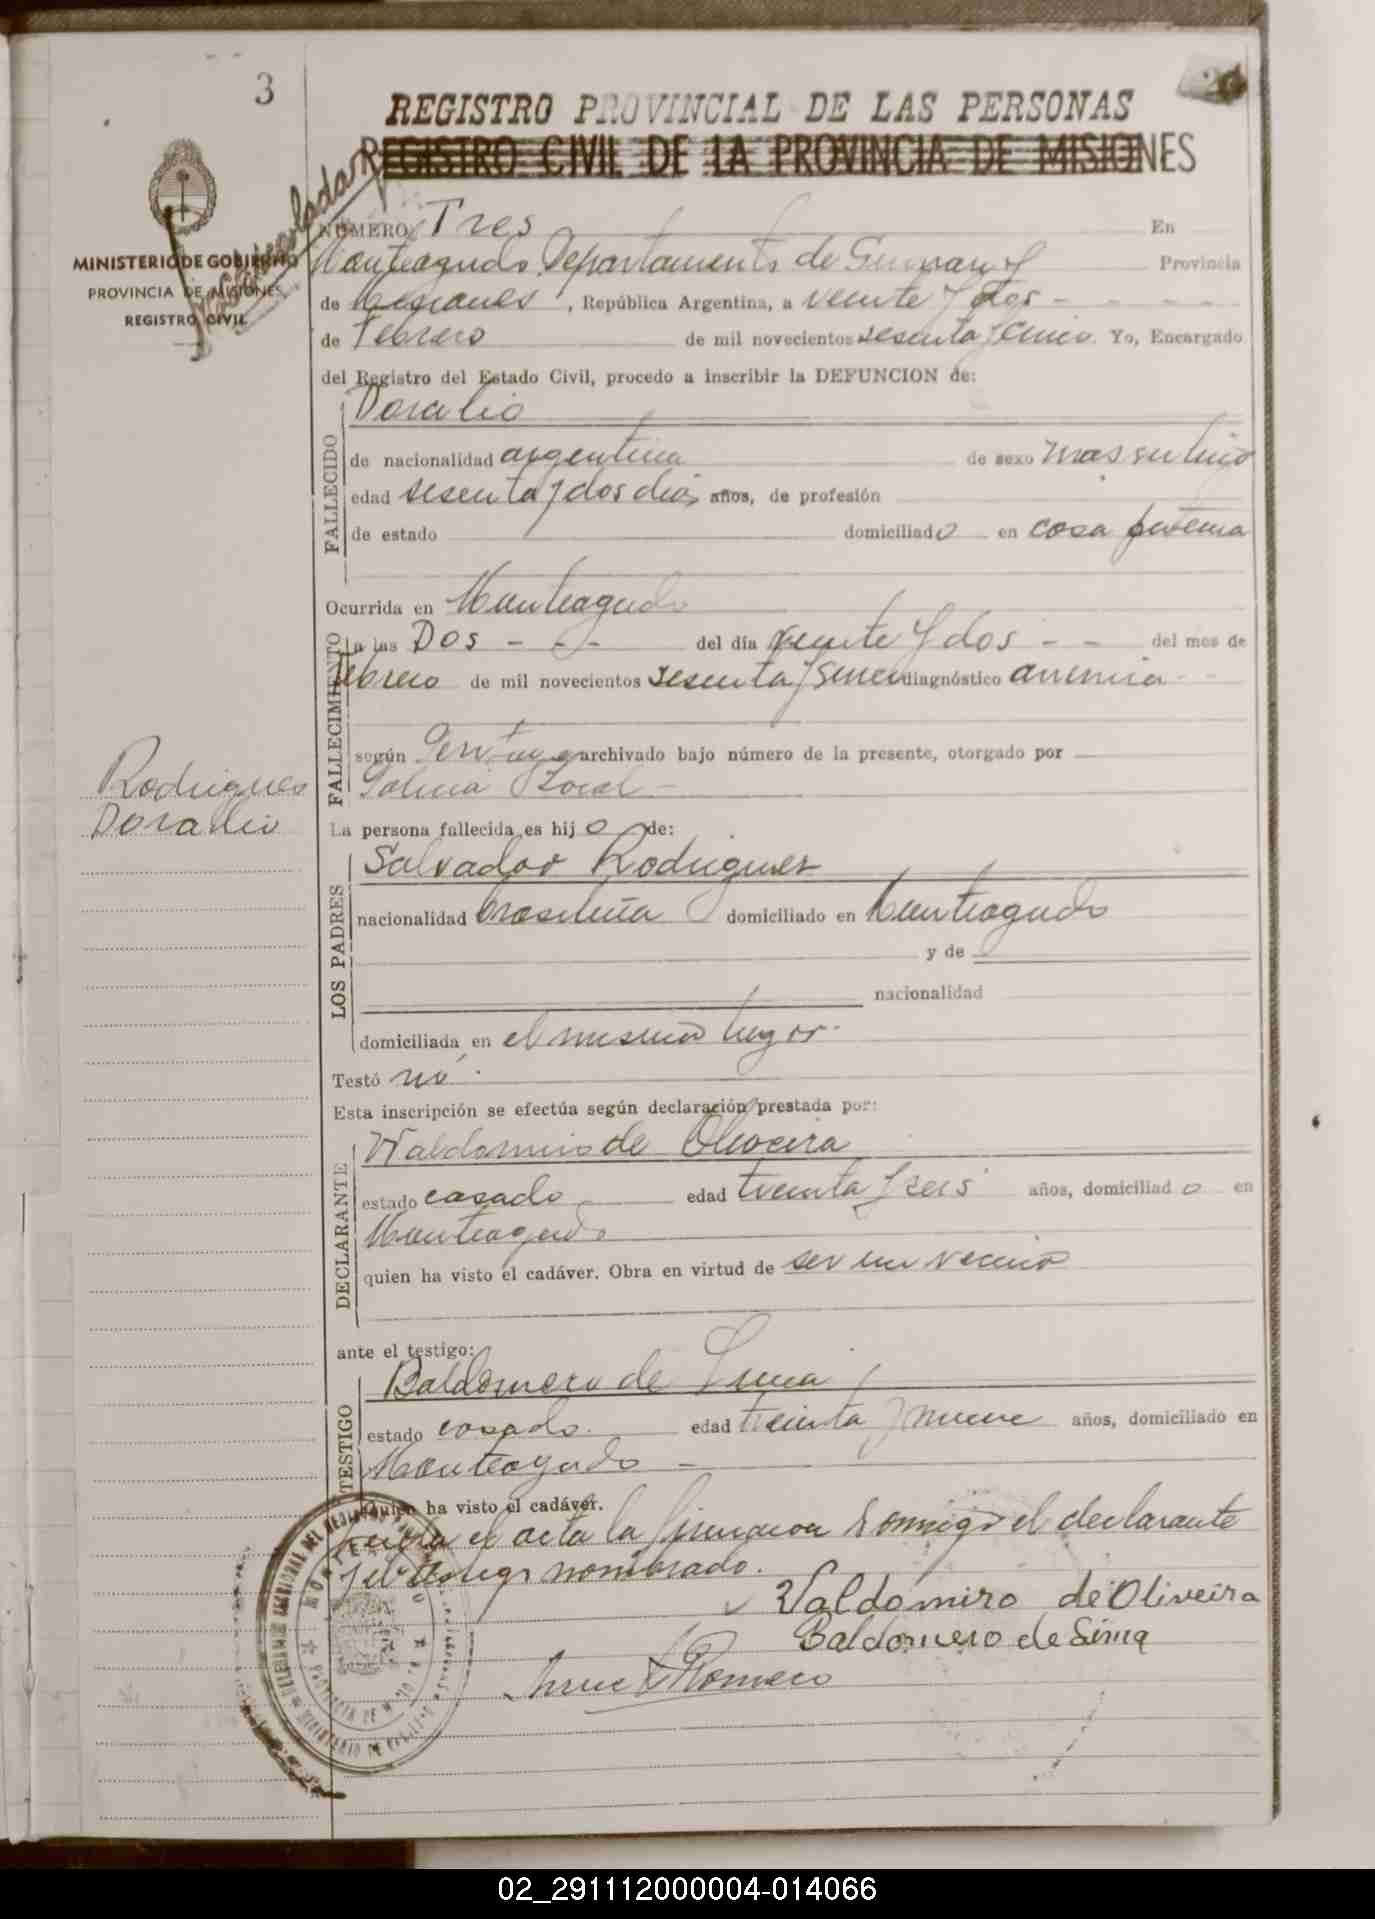 3
REGISTRO PROVINCIAL DE LAS PERSONAS
REGISTRO CIVIL DE LA PROVINCIA DE MISIONES
MINISTERIO DE GOBIERNO
PROVINCIA DE MISIONES
REGISTRO CIVIL
NÚMERO Tres En
Monteagudo Departamento de Guarany Provincia
de Misiones, República Argentina, a veinte y dos
de Febrero de mil novecientos sesenta y cinco. Yo, Encargado
del Registro del Estado Civil, procedo a inscribir la DEFUNCION de:
FALLECIDO
Doralio
de nacionalidad argentina de sexo massculino
edad sesenta y dos dias años, de profesión
de estado domiciliado en casa paterna
Ocurrida en Monteagudo
FALLECIMIENTO
a las Dos - - - del día veinte y dos - - del mes de
Febrero de mil novecientos sesenta y cinco diagnóstico anemia
según archivado bajo número de la presente, otorgado por
Policia Local
Rodrigues
Doralio
La persona fallecida es hijo de:
LOS PADRES
Salvador Rodrigues
nacionalidad brasileña domiciliado en Monteagudo
y de
nacionalidad
domiciliada en el mismo lugar.
Testó no.
Esta inscripción se efectúa según declaración prestada por:
DECLARANTE
Waldomiro de Oliveira
estado casado edad treinta y seis años, domiciliado en
Monteagudo
quien ha visto el cadáver. Obra en virtud de ser un vecino
ante el testigo:
TESTIGO
Baldomero de Lima
estado casado. edad treinta y nueve años, domiciliado en
Monteagudo
quien ha visto el cadáver.
el acta la firmaron conmigo el declarante
y el testigo nombrado.
Valdomiro de Oliveira
Baldomero de Sima
Romero
02_291112000004-014066